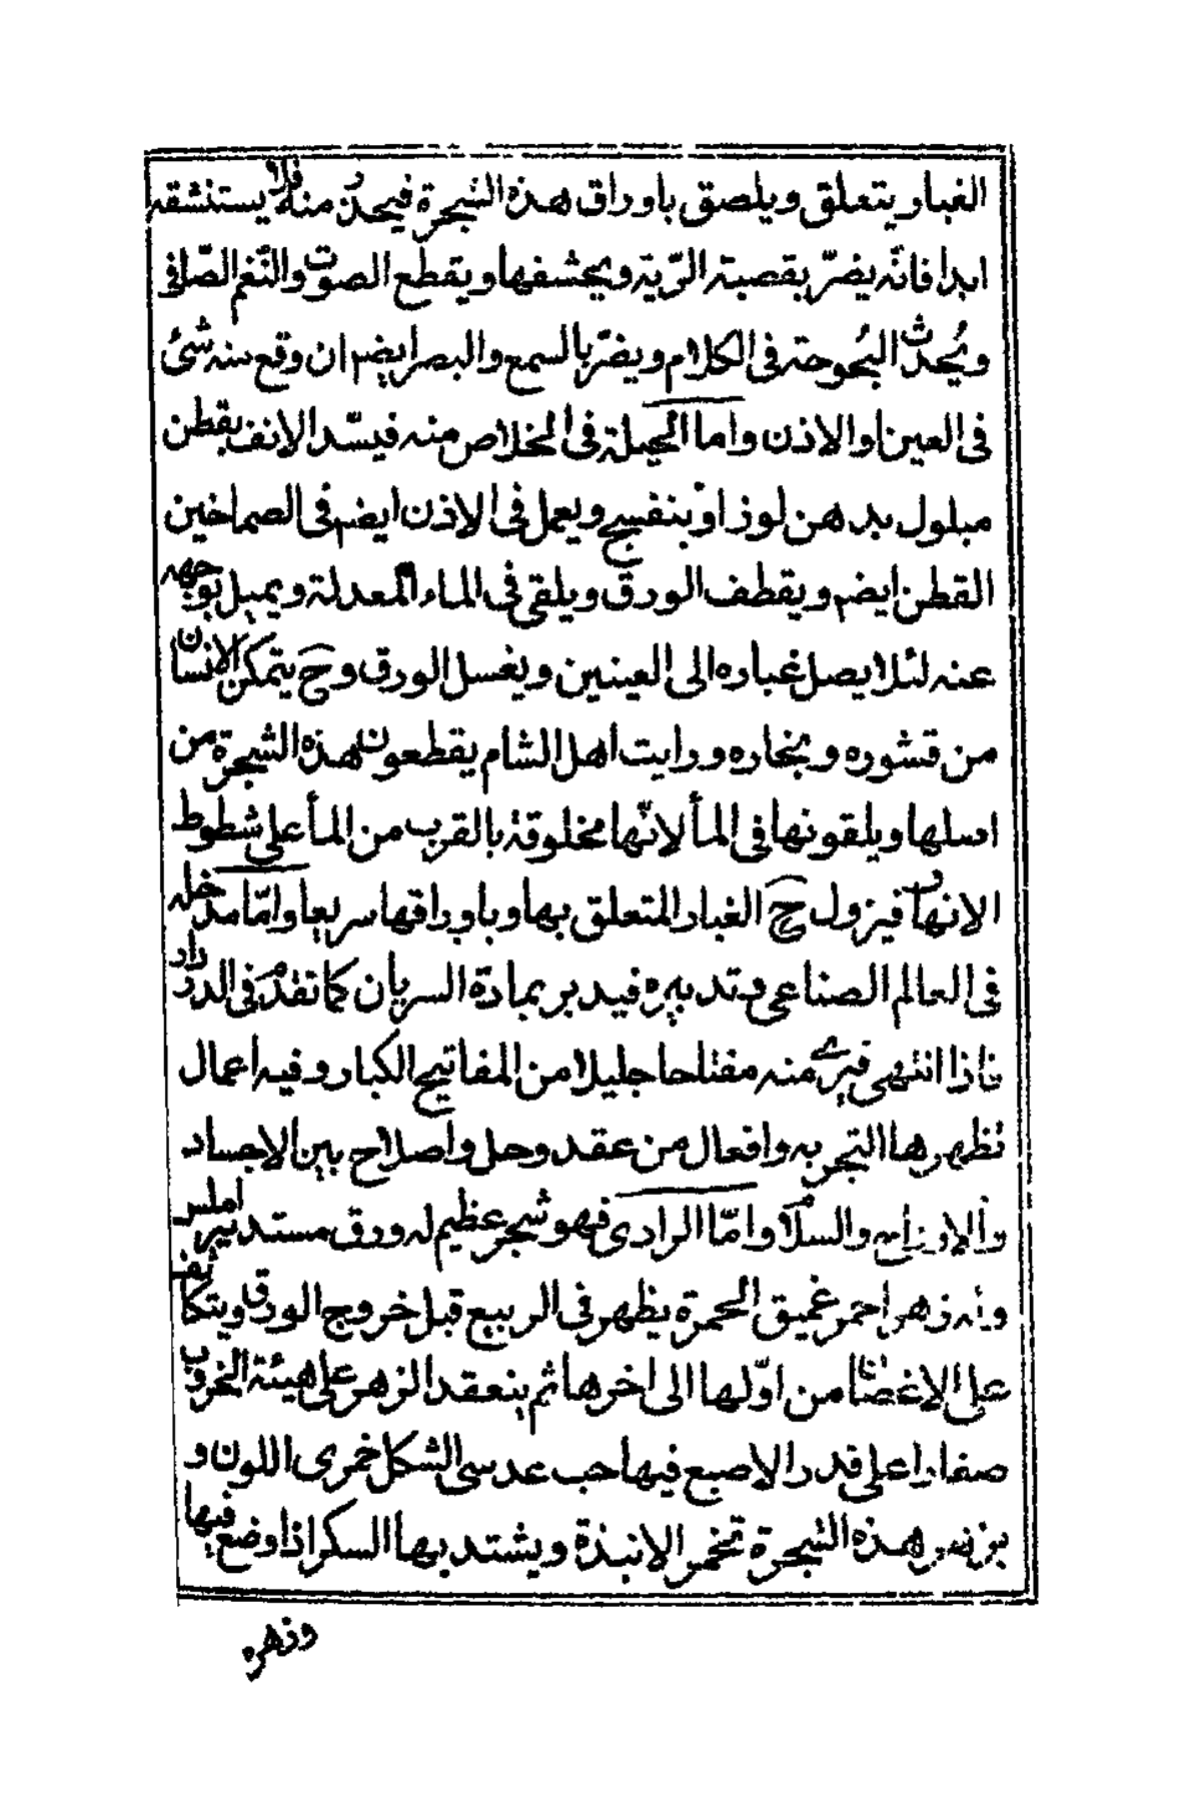 الغبار يتعلق ويلصق باوراق هذه الشجرة فيحذر منه فلا يستنشقه
ابدا فانّه يضرّ بقصبة الرّية ويجشفها ويقطع الصوت والنّغم الصّافى
ويُحدث البُحوحة فى الكلام ويضرّ بالسمع والبصر ايضم ان وقع منه شئ
فى العين او الاذن واما الحيلة فى الخلاص منه فيسّد الانف بقطن
مبلول بدهن لوز او بنفسج ويعمل فى الاذن ايضم فى الصماخين
القطن ايضم ويقطف الورق ويلقى فى الماء المعد له ويميل بوجهه
عنه لئلا يصل غباره الى العينين ويغسل الورق وح يتمكن الانسان
من قشوره وبخاره ورايت اهل الشام يقطعون هذه الشجرة من
اصلها ويلقونها فى المأ لانّها مخلوقة بالقرب من المأ على شطوط
الانهار فيزول ح الغبار المتعلق بها وباوراقها سريعا وامّا مدخله
فى العالم الصناعى وتدبيره فيدبر بمادة السريان كما تقدّم فى الدردار
فاذا انتهى فيرى منه مفتاحا جليلا من المفاتيح الكبار وفيه اعمال
تظهرها التجربه وافعال من عقد وحل واصلاح بين الاجساد
والارواح والسلام وامّا الرادى فهو شجر عظيم له ورق مستدير املس
وله زهر احمر غميق الحمرة يظهر فى الربيع قبل خروج الورق ويتكاثف
على الاغصان من اوّلها الى اخرها ثم ينعقد الزهر على هيئة الخروب
صغارا على قدر الاصبع فيها حب عدسى الشكل خمرى اللون و
بزهر هذه الشجرة تخمر الانبذة ويشتد بها السكر اذا وضع فيها
وزهره